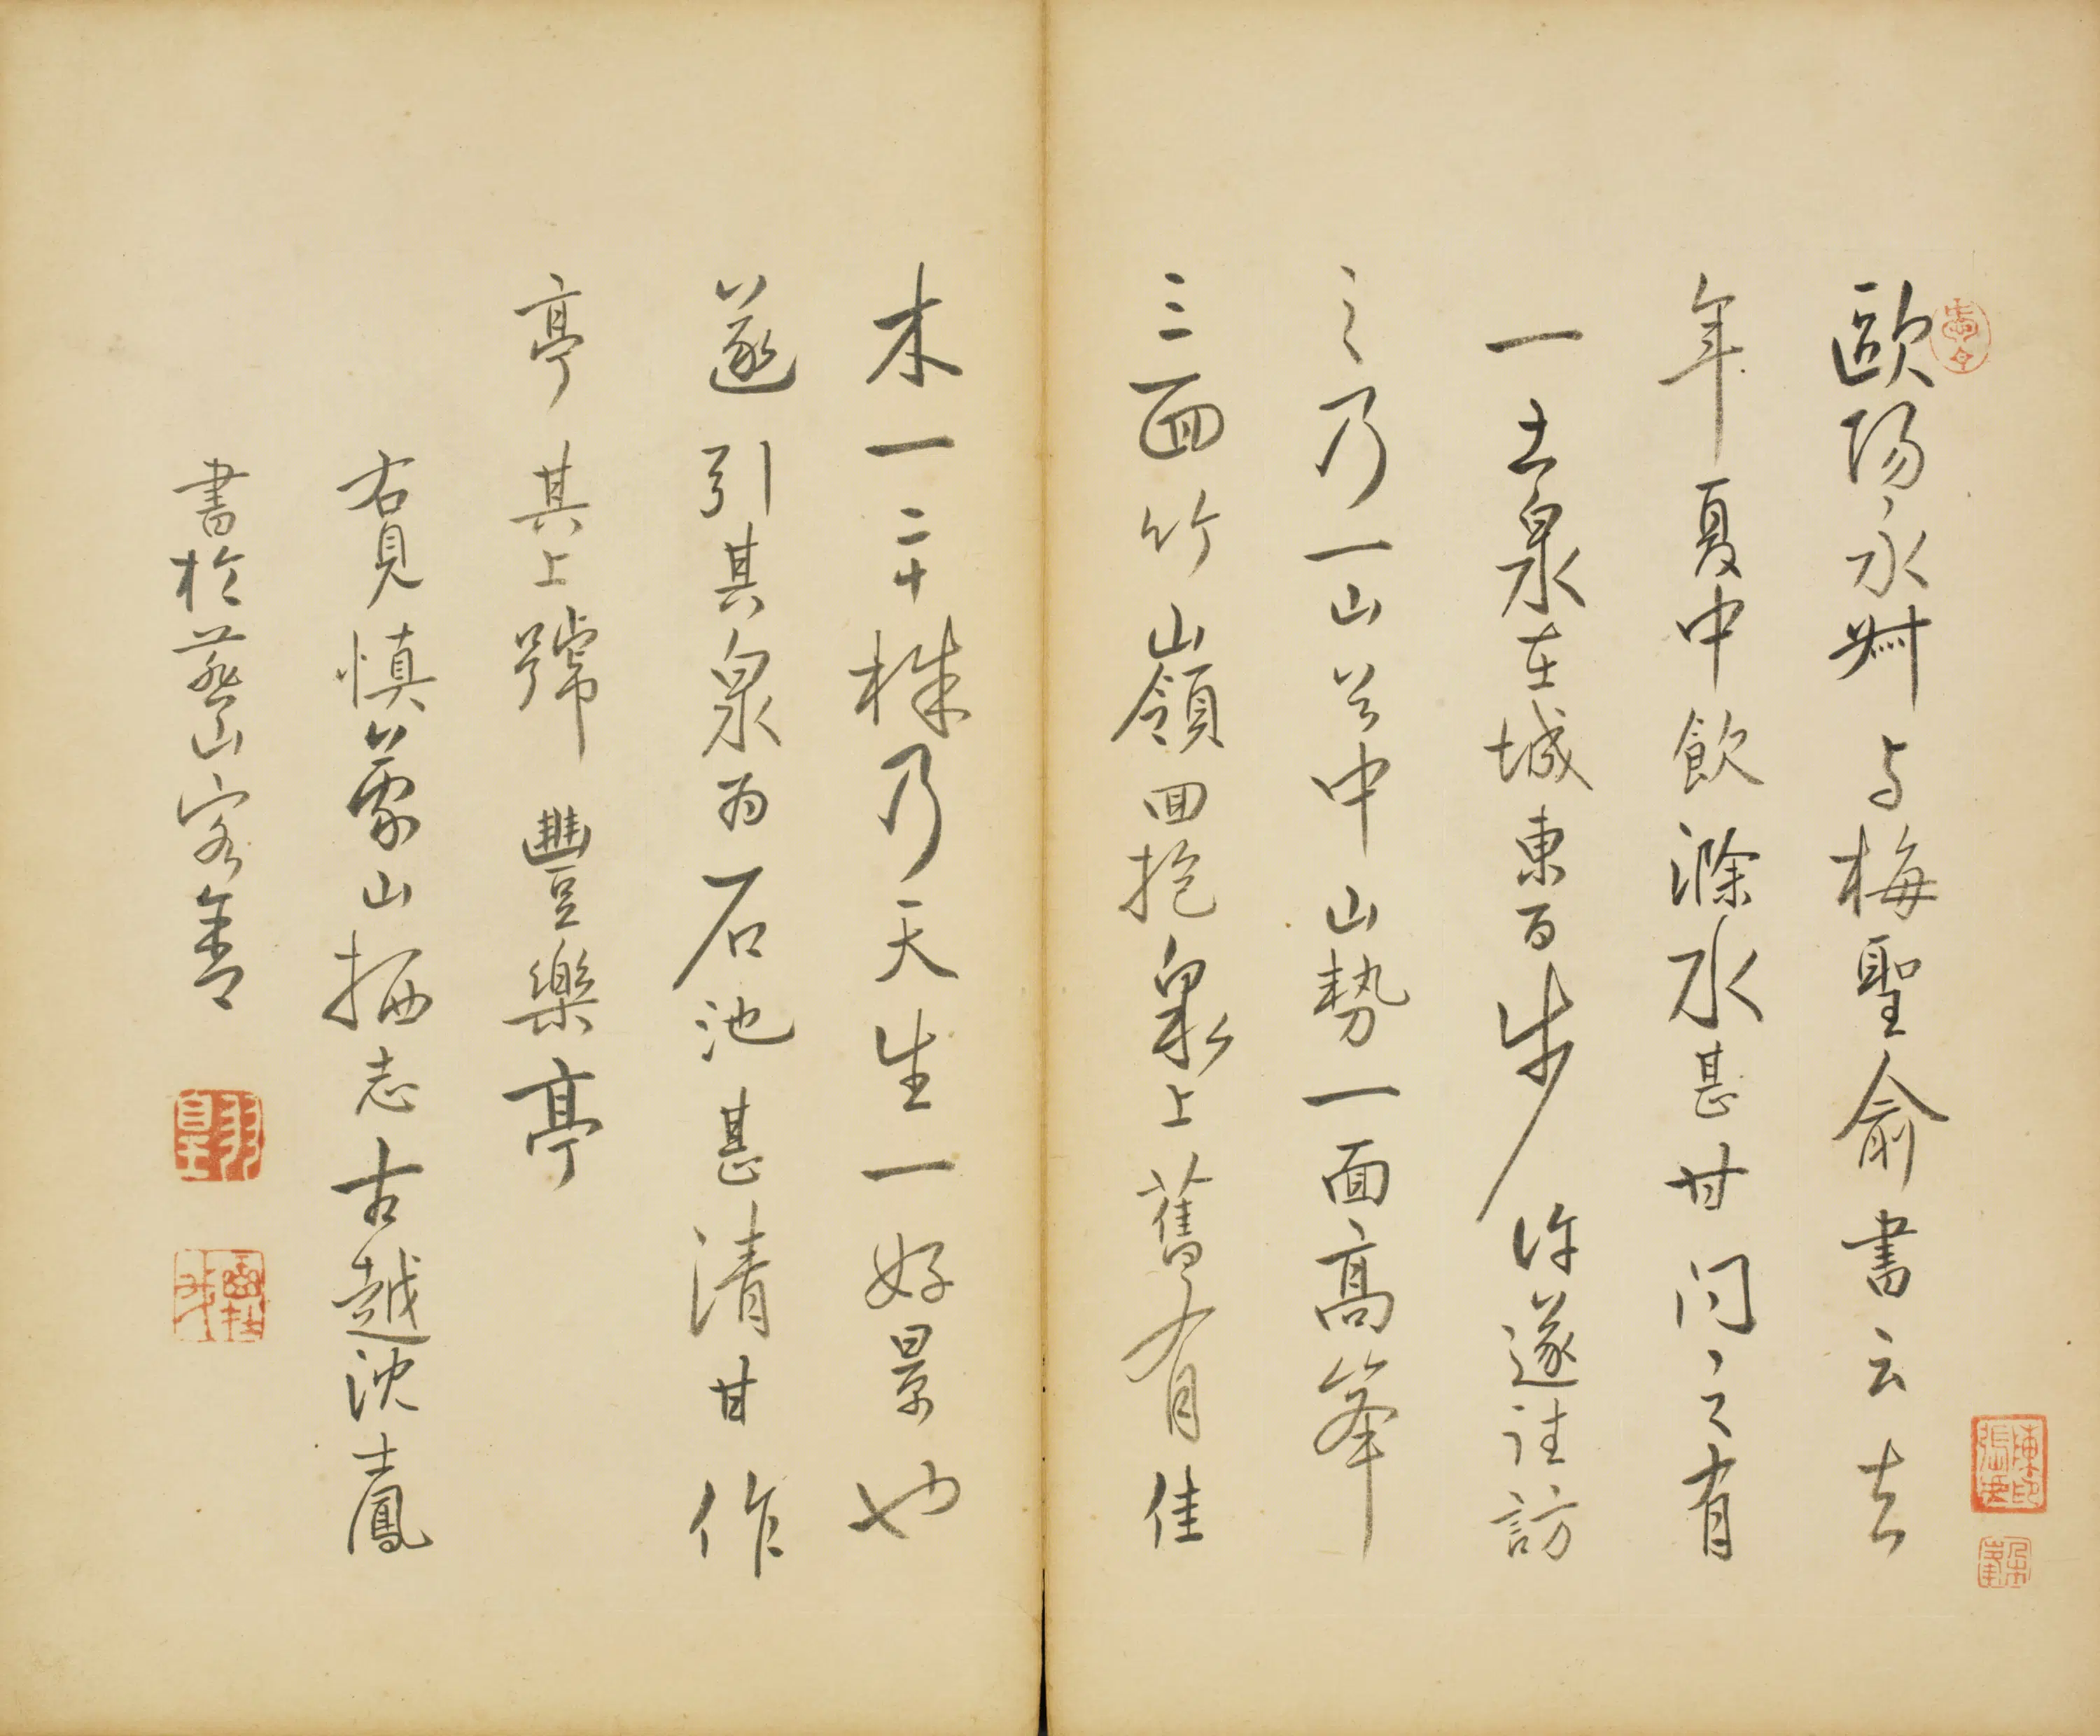 歐陽永叔与梅聖俞書云去
年夏中飲滁水甚甘问之有
一土泉在城東百步许遂往訪
之乃一山谷中山勢一面高峯
三面竹山嶺回抱泉上舊有佳
木一二十株乃天生一好景也
遂引其泉为石池甚清甘作
亭其上號豐樂亭
右見慎蒙山栖志古越沈士鳳
書於燕山客舍